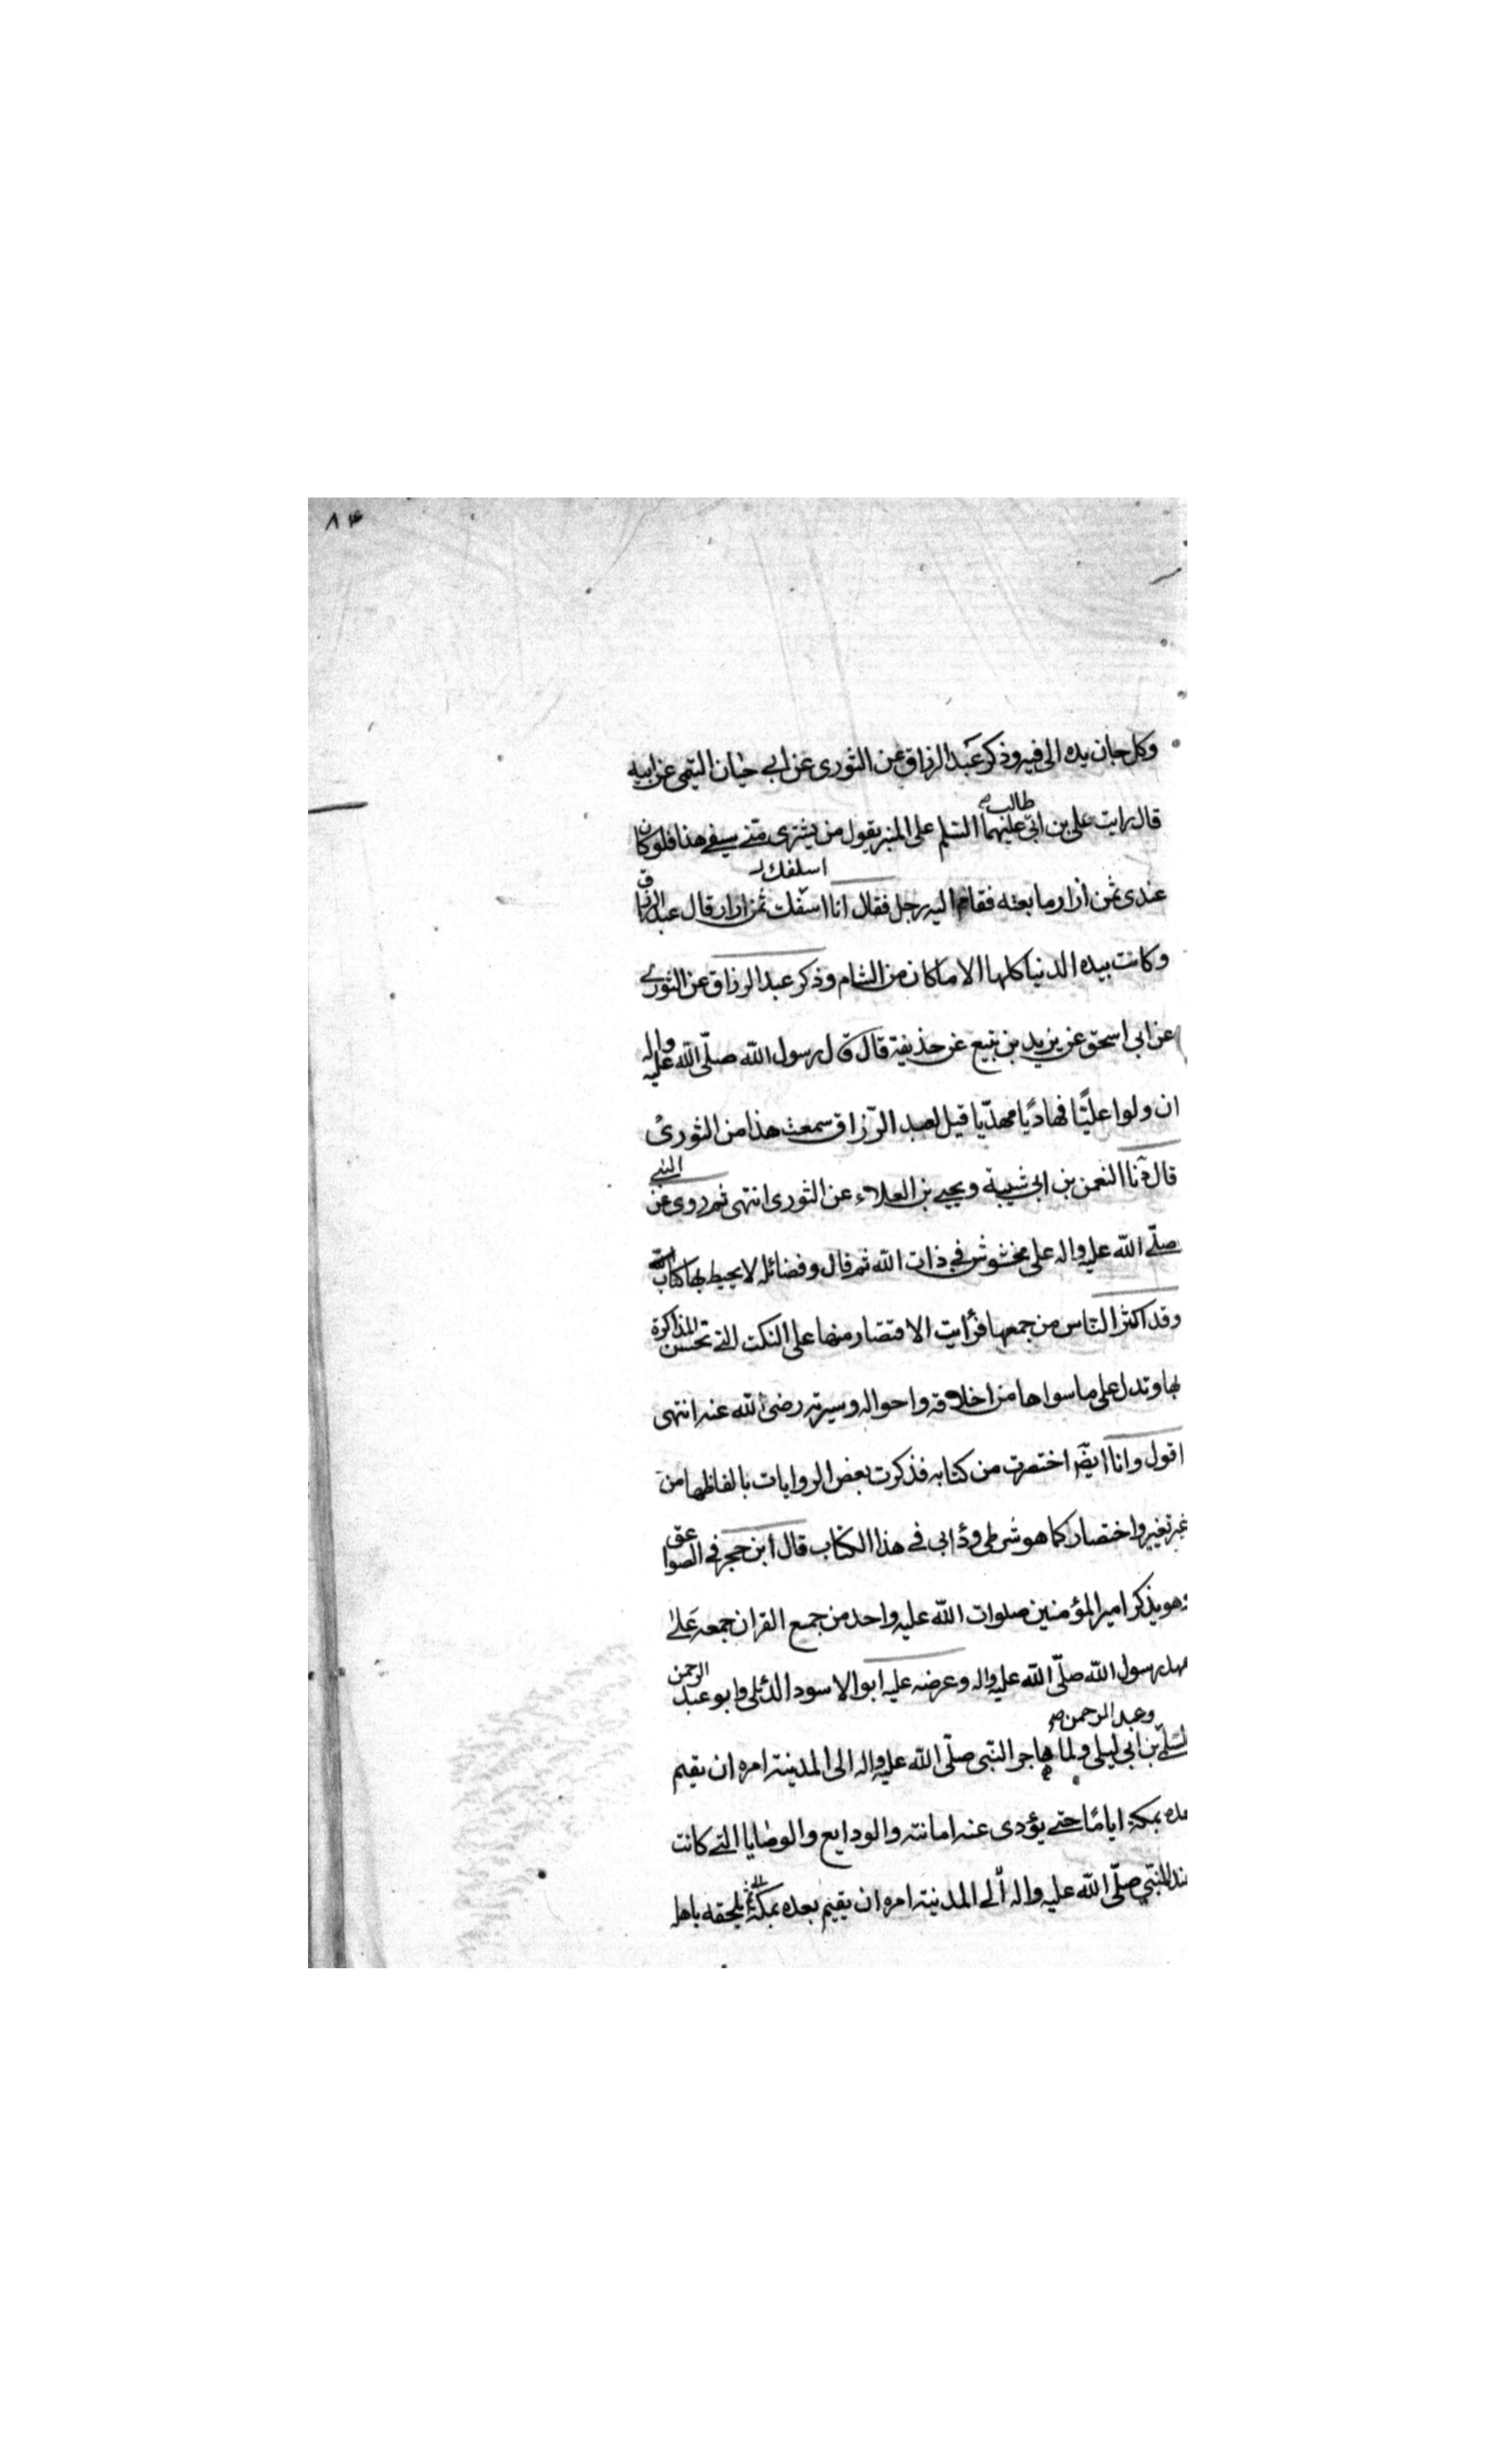 ٨٤
وكل جان يده الى فيه وذكر عبد الرزاق عن الثورى عن ابي حيان التيمى عن ابيه
قال رايت على بن ابى طالب عليهما السلم على المنبر يقول من يشترى منى سيفى هذا فلو كان
اسلفك
عندى ثمن ازار ما بعته فقام اليه رجل فقال انا اسفك ثمن ازار قال عبد الرزاق
وكانت بيده الدنيا كلها الا ما كان من الشام وذكر عبد الرزاق عن الثورى
عن ابى اسحق عن يزيد بن يتيع عن حذيفة قال قال رسول الله صلّى الله عليه واله
ان ولوا عليّا فهاديًا مهديّا قيل لعبد الرّزاق سمعت هذا من الثورى
قال نا النعمن بن ابى شيبة ويحيى بن العلاء عن الثورى انتهى ثم روى عن النبى
صلّى الله عليه واله على مخشوش فى ذات الله ثم قال وفضائله لا يحيط بها كتاب
وقد اكثر النّاس من جمعها فرأيت الاقتصار منها على النكت التى تحسن المذاكرة
بها وتدل على ما سواها من اخلاقه واحواله وسيرته رضى الله عنه انتهى
اقول وانا ايضً اختصرت من كتابه فذكرت بعض الروايات بالفاظها من
غير تغيير واختصار كما هو شرطى ودأبى فى هذا الكتاب قال ابن حجر فى الصواعق
وهو يذكر امير المؤمنين صلوات الله عليه واحد من جمع القران جمعه على
عهد رسول الله صلّى الله عليه واله وعرضه عليه ابو الاسود الدئلى وابو عبد الرحمن
السلمى وعبد الرحمن بن ابى ليلى ولما هاجر النّبى صلّى الله عليه واله الى المدينة امره ان يقيم
بعده بمكة ايامًا حتى يؤدى عنه امانته والودايع والوصايا التى كانت
عند النّبي صلّى الله عليه واله الى المدينة امره ان يقيم بعده بمكة ثم يلحقه باهله